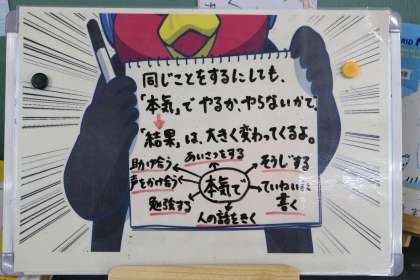 同じことをするにしても、
「本気」でやるか、やらないかで、
「結果」は、大きく変わってくるよ。
あいさつをする
助け合う
そうじする
声をかけ合う
本気で
ていねいに
書く
勉強する
人の話をきく